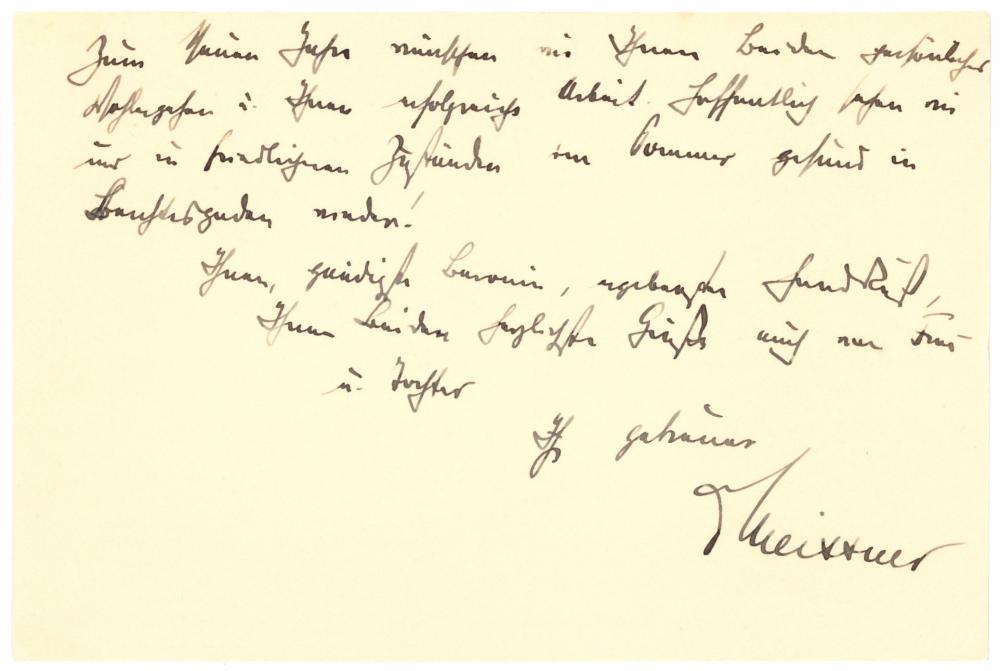 Zum Neuen Jahr wünschen wir Ihnen Beiden persönliches
Wohlergehen u. Ihnen erfolgreiche Arbeit. Hoffentlich sehen wir
uns in friedlicheren Zuständen im Sommer gesund in
Berchtesgaden wieder!
Ihnen, gnädigste Baronin, ergebensten Handkuß,
Ihnen Beiden herzlichste Grüße auch von Frau
u. Tochter
Ihr getreuer
Meissner